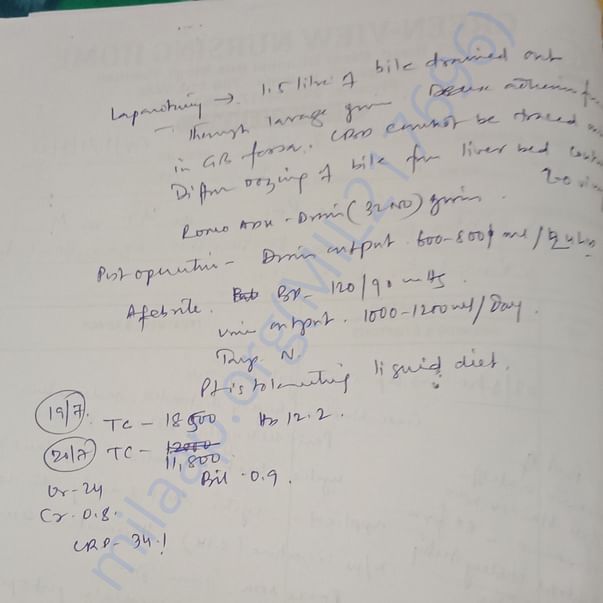 Laparotomy → 1.5 litre of bile drained out
Thorough lavage given
in GB fossa. CBD cannot be traced
Diffuse oozing of bile from liver bed
ADK - Drain (32 NO) given.
Post operative - Drain output 600-800 ml / 24 hrs
Afebrile. BP - 120/90 mmHg
Urine output. 1000-1200 ml / Day.
Temp. N.
Pt is tolerating liquid diet.
19/7. TC - 18500 Hb 12.2.
20/7 TC - 12000
11,800
Ur - 24 Bil - 0.9.
Cr. 0.8.
CRP - 34.1
GREEN-VIEW NURSING HOME
milaap.org(MIL217696)